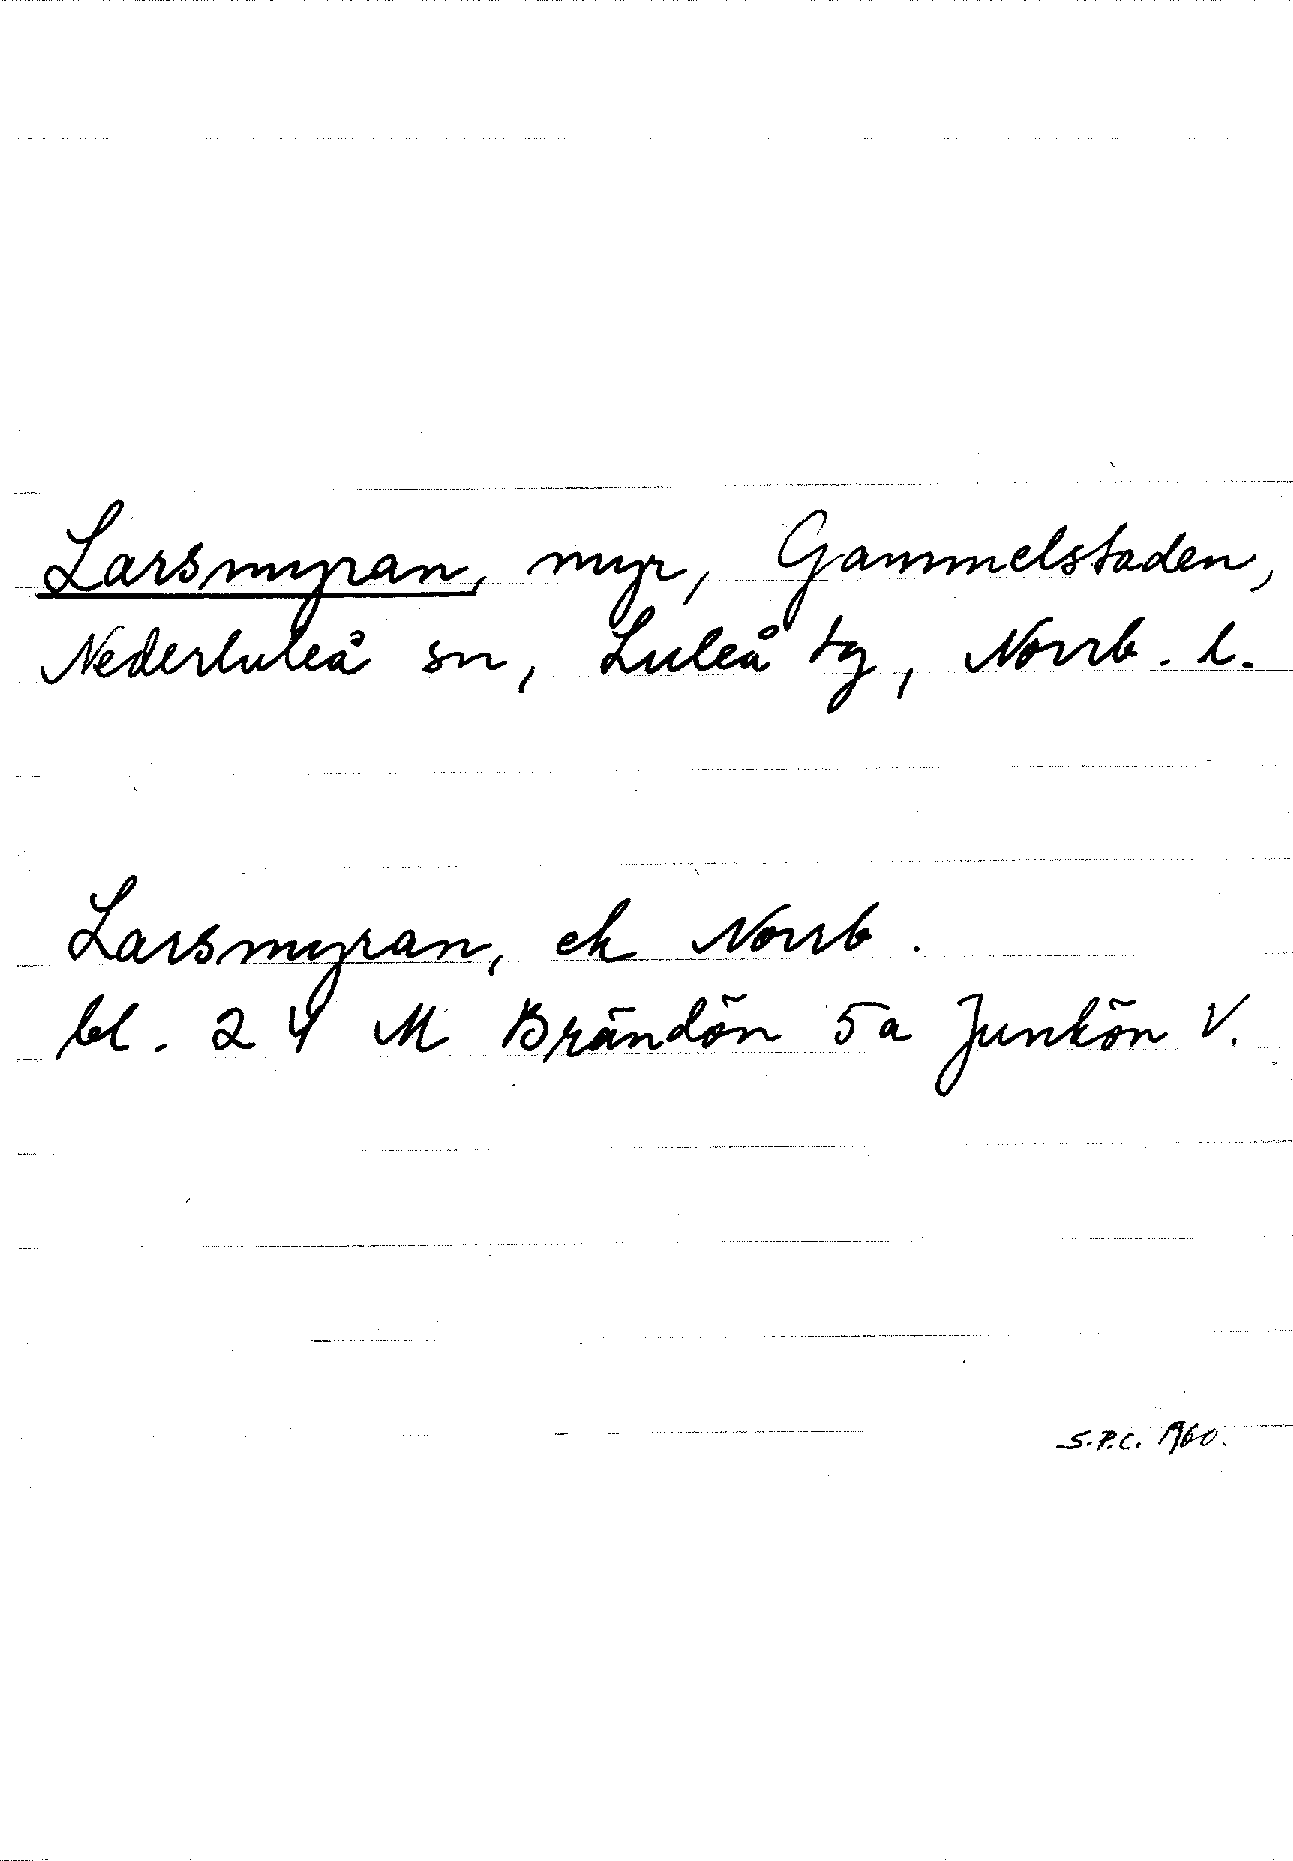 Larsmyran, myr, Gammelstaden,
Nederluleå sn, Luleå tg, Norrb. l.
Larsmyran, ek Norrb.
bl. 24 M Brändön 5a Junkön V.
S.P.C. 1960.